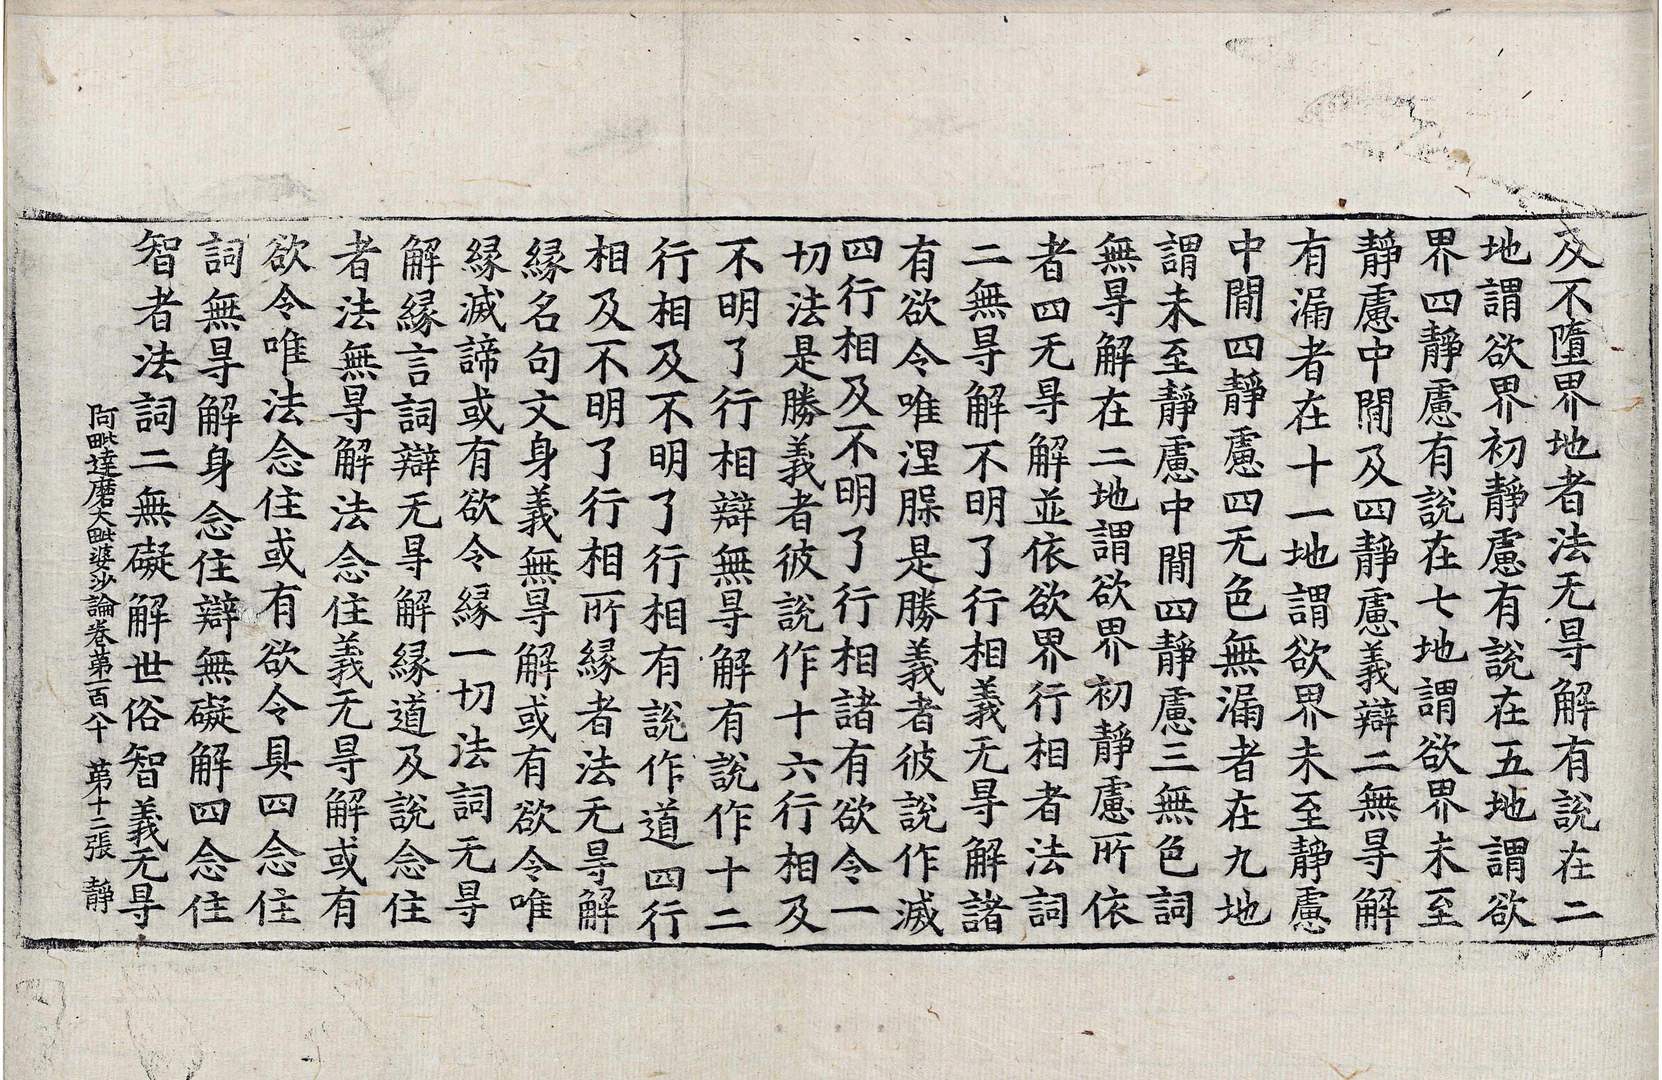 及不墮界地者法无㝵解有說在二
地謂欲界初靜慮有說在五地謂欲
界四靜慮有說在七地謂欲界未至
靜慮中間及四靜慮義辯二無㝵解
有漏者在十一地謂欲界未至靜慮
中間四靜慮四无色無漏者在九地
謂未至靜慮中間四靜慮三無色詞
無㝵解在二地謂欲界初靜慮所依
者四无㝵解並依欲界行相者法詞
二無㝵解不明了行相義无㝵解諸
有欲令唯涅槃是勝義者彼說作滅
四行相及不明了行相諸有欲令一
切法是勝義者彼說作十六行相及
不明了行相辯無㝵解有說作十二
行相及不明了行相有說作道四行
相及不明了行相所緣者法无㝵解
緣名句文身義無㝵解或有欲令唯
緣滅諦或有欲令緣一切法詞无㝵
解緣言詞辯无㝵解緣道及說念住
者法無㝵解法念住義无㝵解或有
欲令唯法念住或有欲令具四念住
詞無㝵解身念住辯無礙解四念住
智者法詞二無礙解世俗智義无㝵
阿毗達磨大毗婆沙論卷第一百八十 第十二張 靜